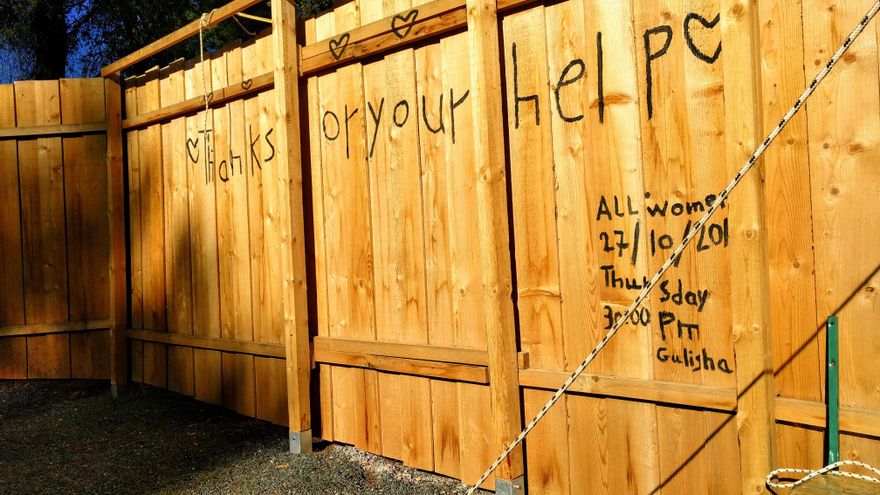 Thanks or your help
ALL women
27/10/201
ThurSday
Pm
Gulisha